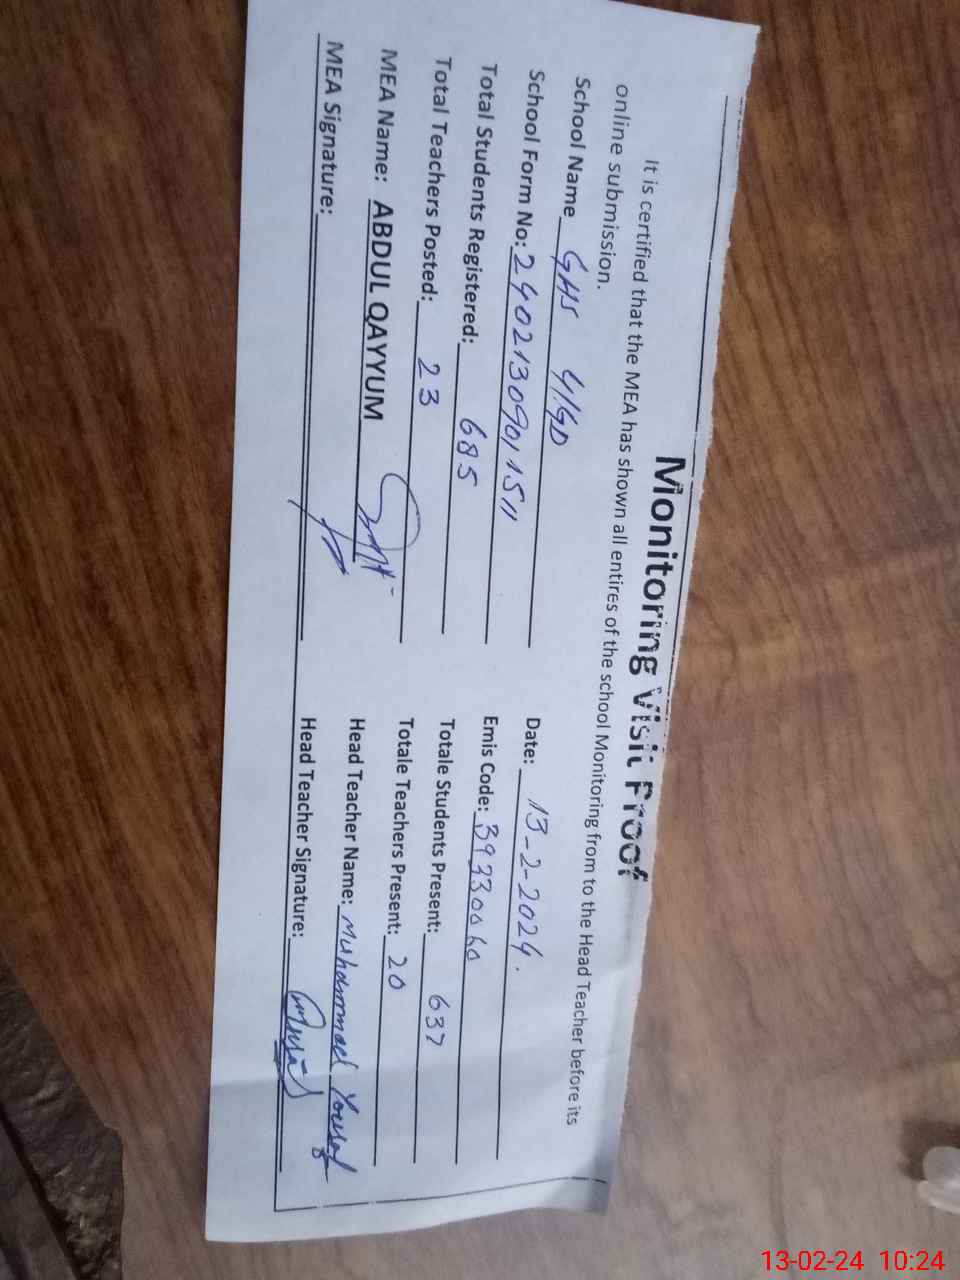 Monitoring Visit Proof
It is certified that the MEA has shown all entires of the school Monitoring from to the Head Teacher before its
online submission.
School Name GHS 4/GD Date: 13-2-2024.
School Form No: 24021309011511 Emis Code: 39330040
Total Students Registered: 685 Totale Students Present: 637
Total Teachers Posted: 23 Totale Teachers Present: 20
MEA Name: ABDUL QAYYUM Head Teacher Name: Muhammad Yousaf
MEA Signature: Head Teacher Signature:
13-02-24 10:24